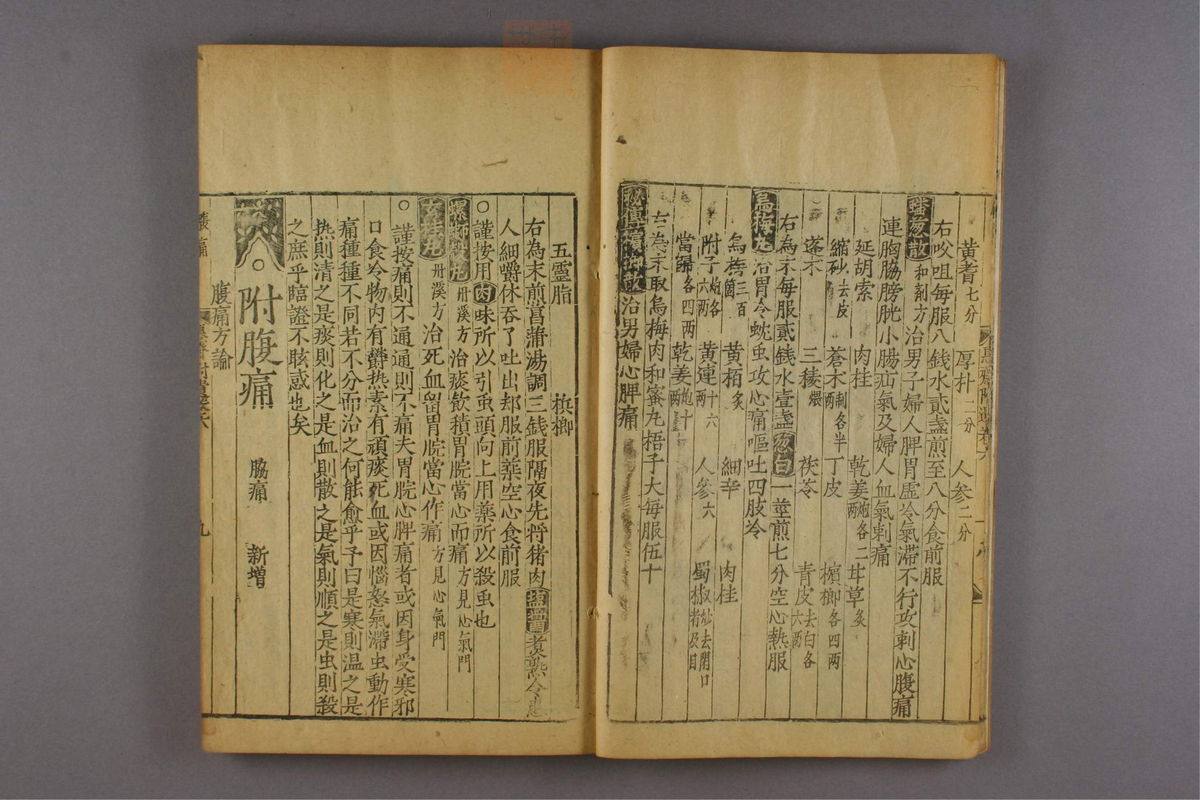 黃耆七分 厚朴二分 人參二分
右㕮咀每服八錢水貳盞煎至八分食前服
蟠葱散和劑方治男子婦人脾胃虛冷氣滯不行攻刺心腹痛
連胸脇膀胱小腸疝氣及婦人血氣刺痛
延胡索 肉桂 乾姜炮各二兩 甘草炙
縮砂去皮 蒼朮制各半 丁皮 檳榔各四兩
蓬朮 三稜煨 茯苓 青皮去白各六兩
右為末每服貳錢水壹盞葱白一莖煎七分空心熱服
烏梅丸治胃冷蚘虫攻心痛嘔吐四肢冷
烏梅三百箇 黃栢炙 細辛 肉桂
附子炮各六兩 黃連十六兩 人參六 蜀椒炒去閉口者及目
當歸各四兩 乾姜炮十兩
右為末取烏梅肉和蜜丸梧子大每服伍十
秘傳檳榔散治男婦心脾痛
五靈脂 檳榔
右為末煎菖蒲湯調三錢服隔夜先将猪肉塩醬煮熟令患
人細嚼休吞了吐出却服前藥空心食前服
○謹按用肉味所以引虫頭向上用藥所以殺虫也
螺螄殼丸丹溪方治痰飲積胃脘當心而痛方見心氣門
玄桂丸丹溪方治死血留胃脘當心作痛方見心氣門
○謹按痛則不通通則不痛夫胃脘心脾痛者或因身受寒邪
口食冷物内有欝热素有頑痰死血或因惱怒氣滯虫動作
痛種種不同若不分而治之何能愈乎予曰是寒則温之是
热則清之是痰則化之是血則散之是氣則順之是虫則殺
之庶乎臨證不眩惑也矣
○附腹痛 脇痛 新增
腹痛方論
九